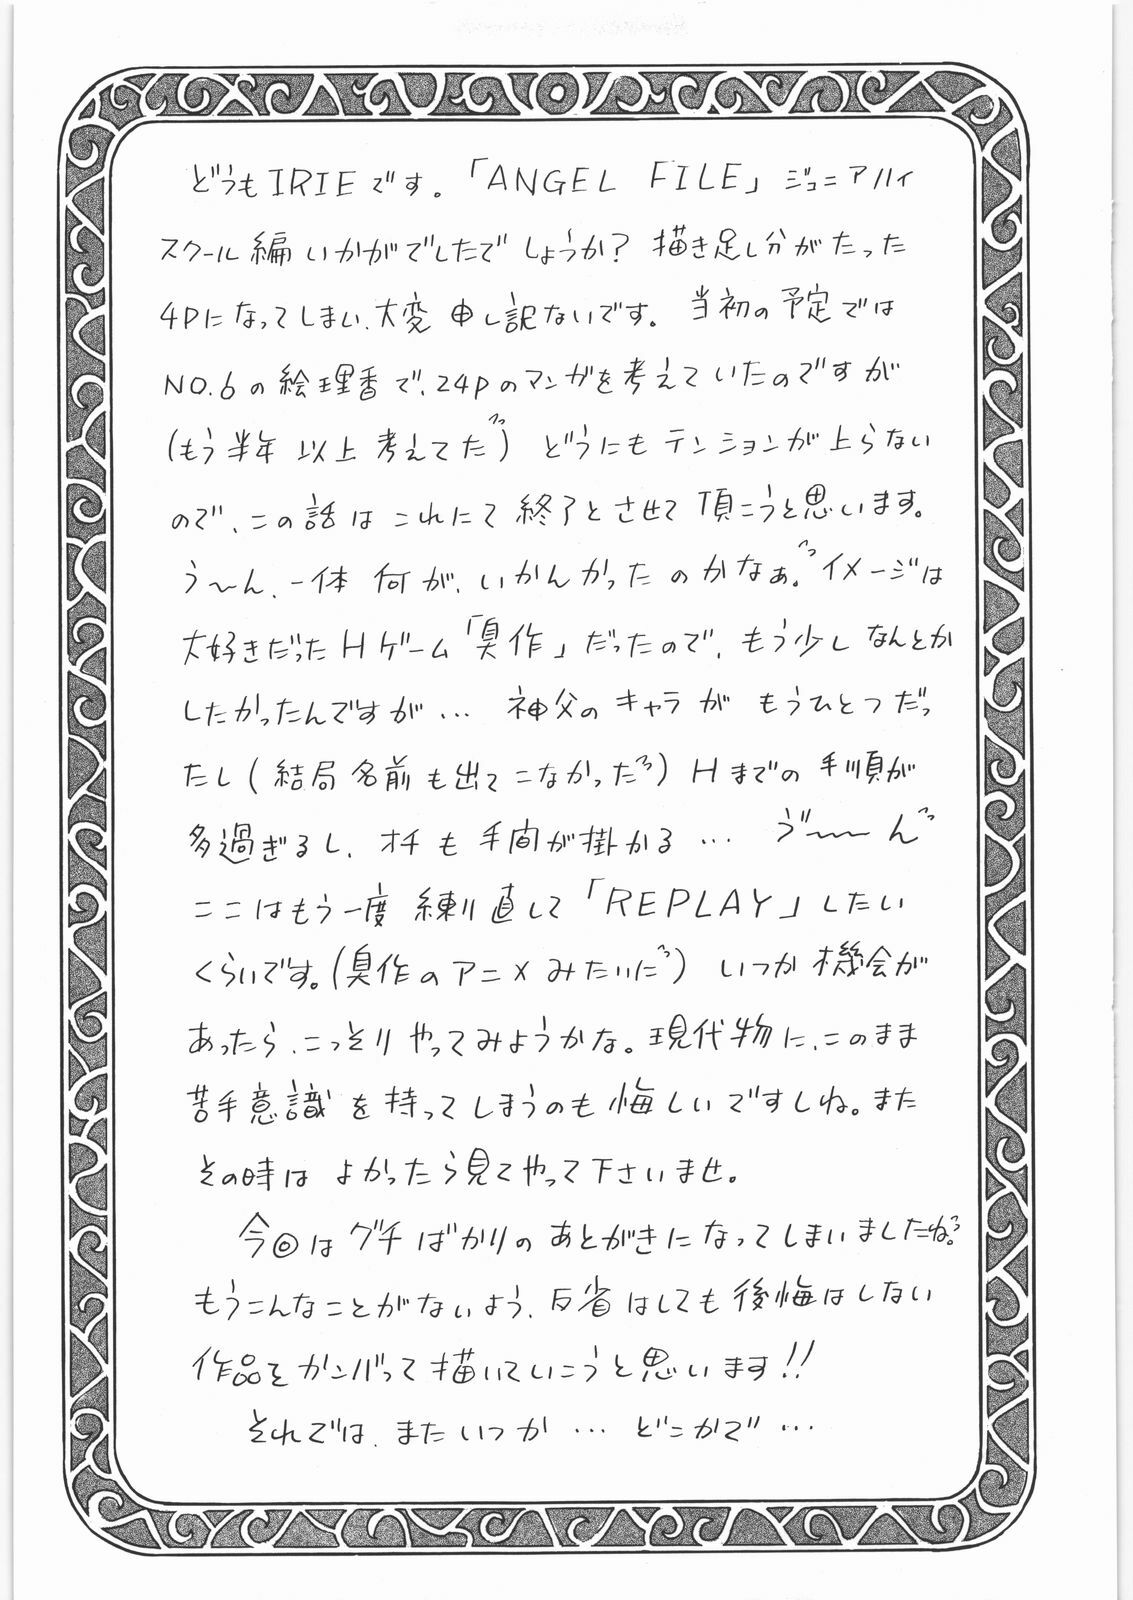 どうもIRIEです。「ANGEL FILE」ジュニアハイ
スクール編いかがでしたでしょうか？描き足し分がたった
4Pになってしまい、大変申し訳ないです。当初の予定では
NO.6の絵理香で、24Pのマンガを考えていたのですが
(もう半年以上考えてた) どうにもテンションが上らない
ので、この話はこれにて終了とさせて頂こうと思います。
う〜ん、一体何が、いかんかったのかなぁ。イメージは
大好きだったHゲーム「臭作」だったので、もう少しなんとか
したかったんですが… 神父のキャラがもうひとつだっ
たし(結局名前も出てこなかった) Hまでの手順が
多過ぎるし、オチも手間が掛かる… ゔ〜〜ん
ここはもう一度練り直して「REPLAY」したい
くらいです。(臭作のアニメみたいに) いつか機会が
あったら、こっそりやってみようかな。現代物に、このまま
苦手意識を持ってしまうのも悔しいですしね。また
その時はよかったら見てやって下さいませ。
今回はグチばかりのあとがきになってしまいましたね。
もうこんなことがないよう、反省はしても後悔はしない
作品をガンバって描いていこうと思います!!
それでは、またいつか…どこかで…